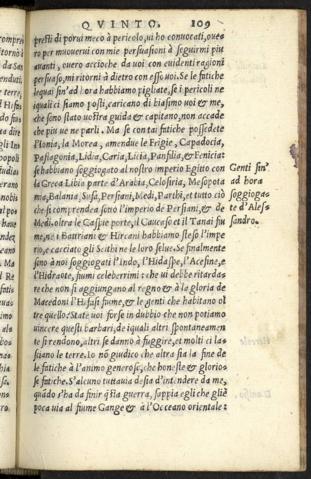 QVINTO. 109
presti di porui meco à pericolo, ui ho conuocati, oue-
ro per muouerui con mie persuasioni à seguirmi piu
auanti, ouero accioche da uoi con euidenti ragioni
persuaso, mi ritorni à dietro con esso uoi. Se le fatiche
lequai sin'ad hora habbiamo pigliate, se i pericoli ne
iquali ci siamo posti, caricano di biasimo uoi & me,
che sono stato uostra guida & capitano, non accade
che piu ue ne parli. Ma se con tai fatiche possedete
l'Ionia, la Morea, amendue le Frigie, Capadocia,
Paflagonia, Lidia, Caria, Licia, Panfilia, & Fenicia:
se habbiamo soggiogato al nostro imperio Egitto con
la Greca Libia parte d'Arabia, Celosiria, Mesopota
mia, Balania, Susa, Persiani, Medi, Parthi, et tutto ciò
che si comprendea sotto l'imperio de Persiani, & de
Medi, oltre le Caspie porte, il Caucaso et il Tanai fiu
me, ne i Battriani & Hircani habbiamo steso l'impe
ro, e cacciato gli Scithi ne le loro selue. Se finalmente
sino à noi soggiogati l'Indo, l'Hidaspe, l'Acesine, e
l'Hidraote, fiumi celeberrimi: che ui debbe ritarda-
re che non si aggiungano al regno & à la gloria de
Macedoni l'Hifasi fiume, & le genti che habitano ol
tre quello: State uoi forse in dubbio che non potiamo
uincere questi barbari, de iquali altri spontaneamen
te si rendono, altri se danno à fuggire, et molti ci la-
sciano le terre. Io nõ giudico che altra sia la fine de
le fatiche à l'animo generoso, che honeste & glorio-
se fatiche. S'alcuno tuttauia desia d'intendere da me,
quãdo s'ha da finir q̃sta guerra, sappia egli che gliè
poca uia al fiume Gange & à l'Occeano orientale:
Genti sin'
ad hora
soggioga-
te d'Ales-
sandro.